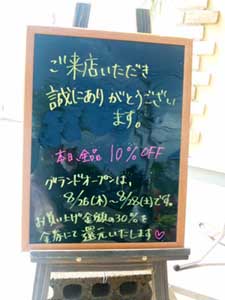 ご来店いただき
誠にありがとうござい
ます。
本日全品 10% OFF
グランドオープンは、
8/26(木)〜8/28(土)です。
お買い上げ金額の30%を
金券にて還元いたします♡